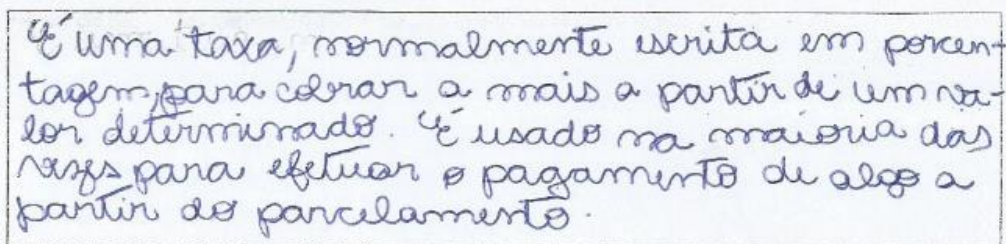 É uma taxa, normalmente escrita em porcen-
tagem, para cobrar a mais a partir de um va-
lor determinado. É usado na maioria das
vezes para efetuar o pagamento de algo a
partir do parcelamento.